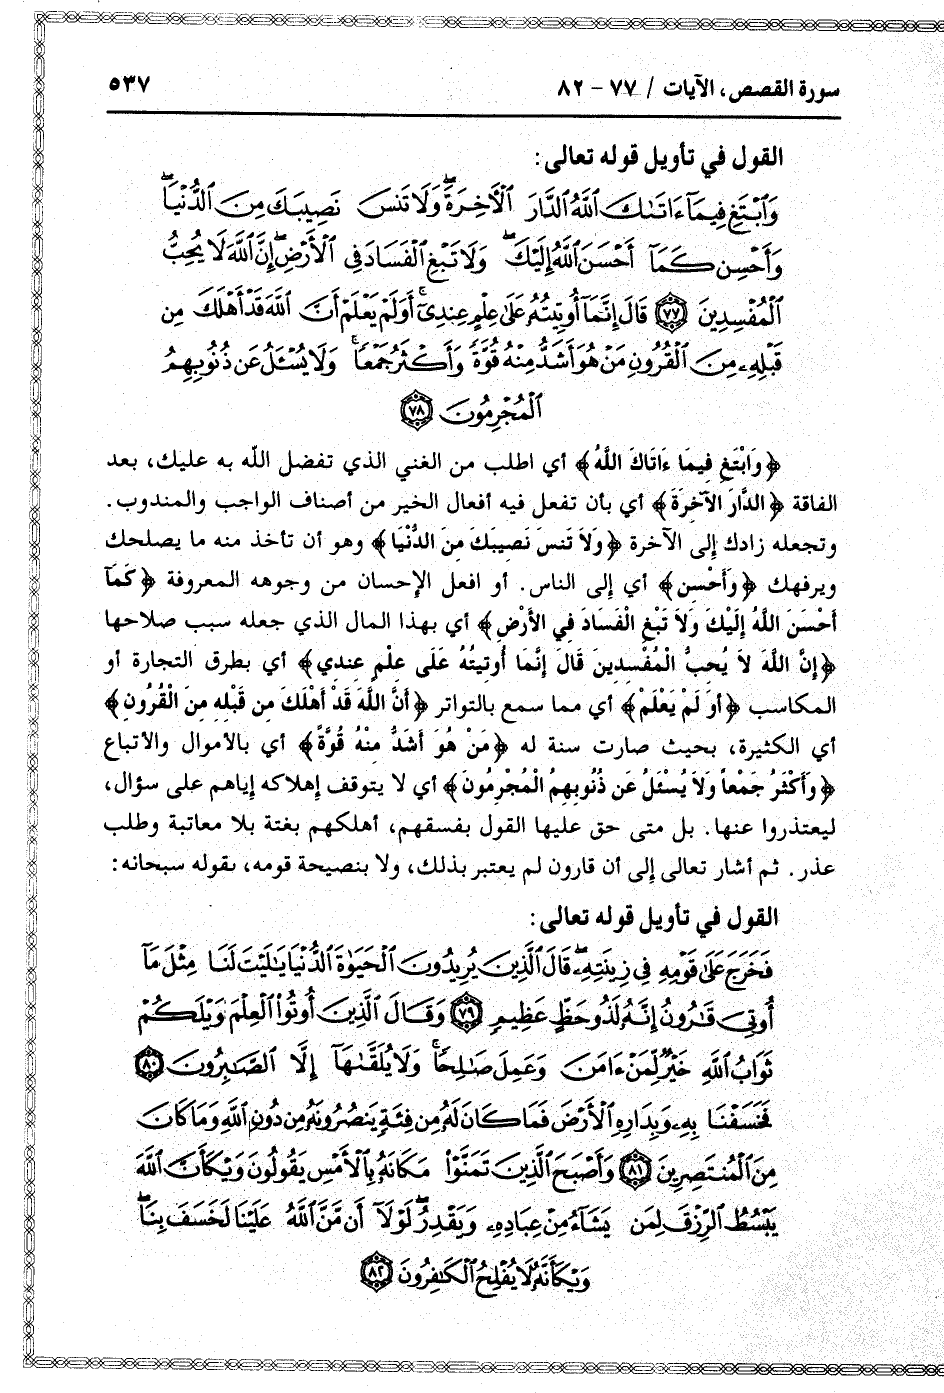 سورة القصص، الآيات / ٧٧ - ٨٢
٥٣٧
القول في تأويل قوله تعالى:
وَابْتَغِ فِيمَا ءَاتَىٰكَ اللَّهُ الدَّارَ الْأَخِرَةَ وَلَا تَنسَ نَصِيبَكَ مِنَ الدُّنْيَا
وَأَحْسِن كَمَا أَحْسَنَ اللَّهُ إِلَيْكَ وَلَا تَبْغِ الْفَسَادَ فِي الْأَرْضِ إِنَّ اللَّهَ لَا يُحِبُّ
الْمُفْسِدِينَ ٧٧ قَالَ إِنَّمَا أُوتِيتُهُ عَلَىٰ عِلْمٍ عِندِي أَوَلَمْ يَعْلَمْ أَنَّ اللَّهَ قَدْ أَهْلَكَ مِن
قَبْلِهِ مِنَ الْقُرُونِ مَنْ هُوَ أَشَدُّ مِنْهُ قُوَّةً وَأَكْثَرُ جَمْعًا وَلَا يُسْئَلُ عَن ذُنُوبِهِمُ
الْمُجْرِمُونَ ٧٨
﴿وَابْتَغِ فِيمَا ءَاتَاكَ اللَّهُ﴾ أي اطلب من الغني الذي تفضل اللّه به عليك، بعد
الفاقة ﴿الدَّارَ الآخِرَةَ﴾ أي بأن تفعل فيه أفعال الخير من أصناف الواجب والمندوب.
وتجعله زادك إلى الآخرة ﴿وَلاَ تَنسَ نَصِيبَكَ مِنَ الدُّنْيَا﴾ وهو أن تأخذ منه ما يصلحك
ويرفهك ﴿وَأَحْسِن﴾ أي إلى الناس. أو افعل الإحسان من وجوهه المعروفة ﴿كَمَآ
أَحْسَنَ اللَّهُ إِلَيْكَ وَلاَ تَبْغِ الْفَسَادَ فِي الأَرْضِ﴾ أي بهذا المال الذي جعله سبب صلاحها
﴿إِنَّ اللَّهَ لاَ يُحِبُّ الْمُفْسِدِينَ قَالَ إِنَّمَا أُوتِيتُهُ عَلَى عِلْمٍ عِندِي﴾ أي بطرق التجارة أو
المكاسب ﴿أَوَ لَمْ يَعْلَمْ﴾ أي مما سمع بالتواتر ﴿أَنَّ اللَّهَ قَدْ أَهْلَكَ مِن قَبْلِهِ مِنَ الْقُرُونِ﴾
أي الكثيرة، بحيث صارت سنة له ﴿مَنْ هُوَ أَشَدُّ مِنْهُ قُوَّةً﴾ أي بالأموال والأتباع
﴿وَأَكْثَرُ جَمْعاً وَلاَ يُسْئَلُ عَن ذُنُوبِهِمُ الْمُجْرِمُونَ﴾ أي لا يتوقف إهلاكه إياهم على سؤال،
ليعتذروا عنها. بل متى حق عليها القول بفسقهم، أهلكهم بغتة بلا معاتبة وطلب
عذر. ثم أشار تعالى إلى أن قارون لم يعتبر بذلك، ولا بنصيحة قومه، بقوله سبحانه:
القول في تأويل قوله تعالى:
فَخَرَجَ عَلَىٰ قَوْمِهِ فِي زِينَتِهِ قَالَ الَّذِينَ يُرِيدُونَ الْحَيَوٰةَ الدُّنْيَا يَٰلَيْتَ لَنَا مِثْلَ مَا
أُوتِيَ قَٰرُونُ إِنَّهُ لَذُو حَظٍّ عَظِيمٍ ٧٩ وَقَالَ الَّذِينَ أُوتُوا الْعِلْمَ وَيْلَكُمْ
ثَوَابُ اللَّهِ خَيْرٌ لِّمَنْ ءَامَنَ وَعَمِلَ صَٰلِحًا وَلَا يُلَقَّىٰهَا إِلَّا الصَّٰبِرُونَ ٨٠
فَخَسَفْنَا بِهِ وَبِدَارِهِ الْأَرْضَ فَمَا كَانَ لَهُ مِن فِئَةٍ يَنصُرُونَهُ مِن دُونِ اللَّهِ وَمَا كَانَ
مِنَ الْمُنتَصِرِينَ ٨١ وَأَصْبَحَ الَّذِينَ تَمَنَّوْا مَكَانَهُ بِالْأَمْسِ يَقُولُونَ وَيْكَأَنَّ اللَّهَ
يَبْسُطُ الرِّزْقَ لِمَن يَشَآءُ مِنْ عِبَادِهِ وَيَقْدِرُ لَوْلَا أَن مَّنَّ اللَّهُ عَلَيْنَا لَخَسَفَ بِنَا
وَيْكَأَنَّهُ لَا يُفْلِحُ الْكَٰفِرُونَ ٨٢